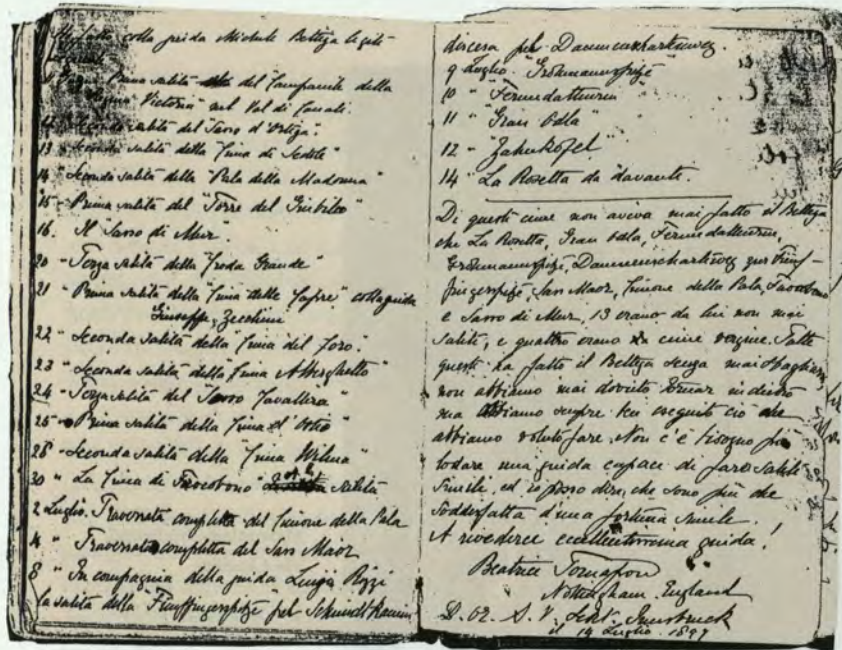 Ho fatto colla guida Michele Bettega le gite
seguenti
Giugno Prima salita del Campanile della
Regina Victoria" nel Val di Canali.
Seconda salita del "Sasso d'Ortiga".
13 " Seconda salita della "Cima di Sedole"
14 " Seconda salita della "Pala della Madonna"
15 - Prima salita del "Torre del Giubileo"
16. Il "Sasso di Mur".
20 - Terza salita della "Croda Grande"
21 " Prima salita della "Cima delle Capre" colla guida
Giuseppe Zecchini
22 " Seconda salita della "Cima del Coro".
23 " Seconda salita della "Cima Alberghetto"
24 - Terza salita del "Sasso Cavallera"
25 - Prima salita della "Cima d'Ostio"
28 - Seconda salita della "Cima Wilma"
30 " La "Cima di Focobono" salita
2 Luglio. Traversata completta del Cimone della Pala
4 " Traversata completta del Sass Maor
8 " In compagnia della guida Luigi Rizzi
la salita della "Fünffingerspitze" pel Schmidt Kamin
discesa pel Daumenschartenweg.
9 Luglio. "Grohmannspitze"
10 " "Fermedatturm"
11 " "Gran Odla"
12 " "Zahnkofel"
14 " La Rosetta da davanti.
Di questi cime non aviva mai fatto il Bettega
che La Rosetta, Gran Odla, Fermedatturm,
Grohmannspitze, Daumenschartenweg zur Fünf-
fingerspitze, Sass Maor, Cimone della Pala, Focobono
e Sasso di Mur, 13 erano da lui non mai
salite, e quattro erano cime vergine. Tutte
questi ha fatto il Bettega senza mai sbagliare,
non abbiamo mai dovuto tornar indietro
ma abbiamo sempre ben eseguito ciò che
abbiamo voluto fare. Non c'è bisogno più
lodare una guida capaci di fare salite
simili, ed io posso dire, che sono più che
soddisfatta d'una fortuna simile.
A rivederce eccellentissima guida!
Beatrice Tomasson
Nottingham. England
S. V. Sekt. Innsbruck
il 14 Luglio. 1897